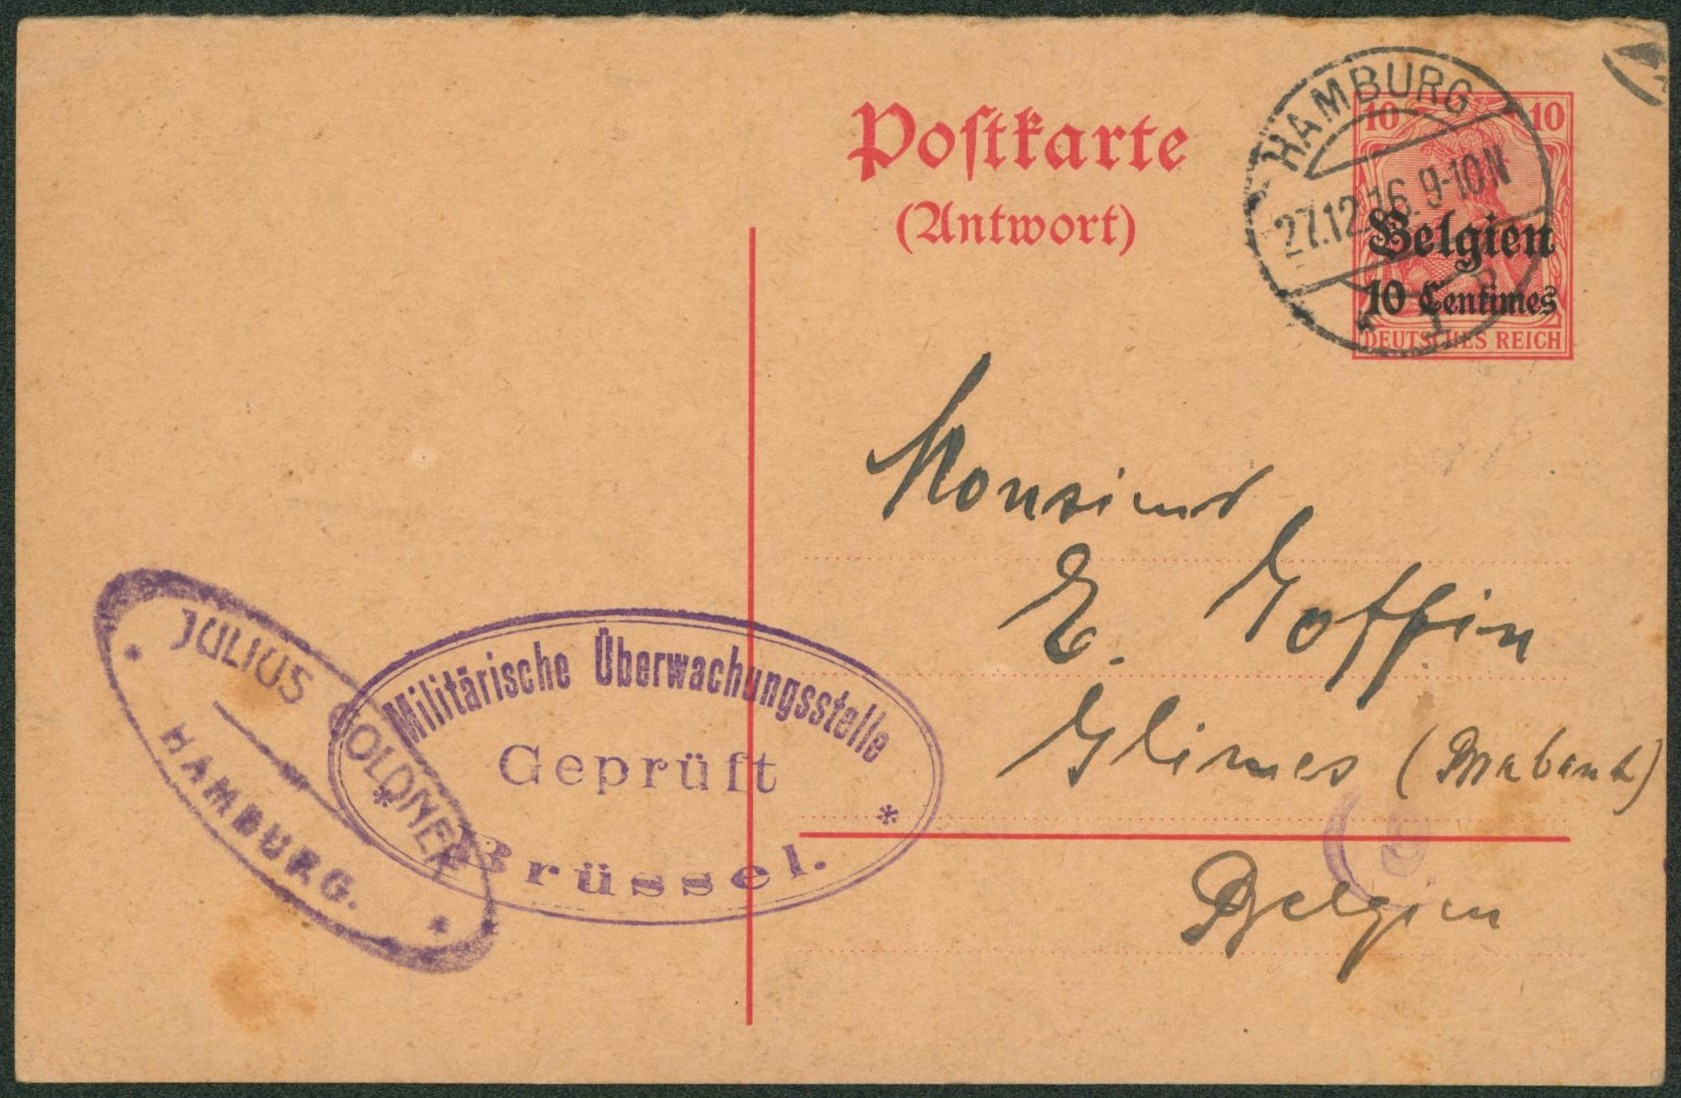 Postkarte
(Antwort)
HAMBURG
27.12.16. 9-10N
* 1
10 10
Belgien
10 Centimes
DEUTSCHES REICH
Monsieur
E. Goffin
Glimes (Brabant)
Belgien
JULIUS GOLDNER
HAMBURG.
Militärische Überwachungsstelle
Geprüft
Brüssel.